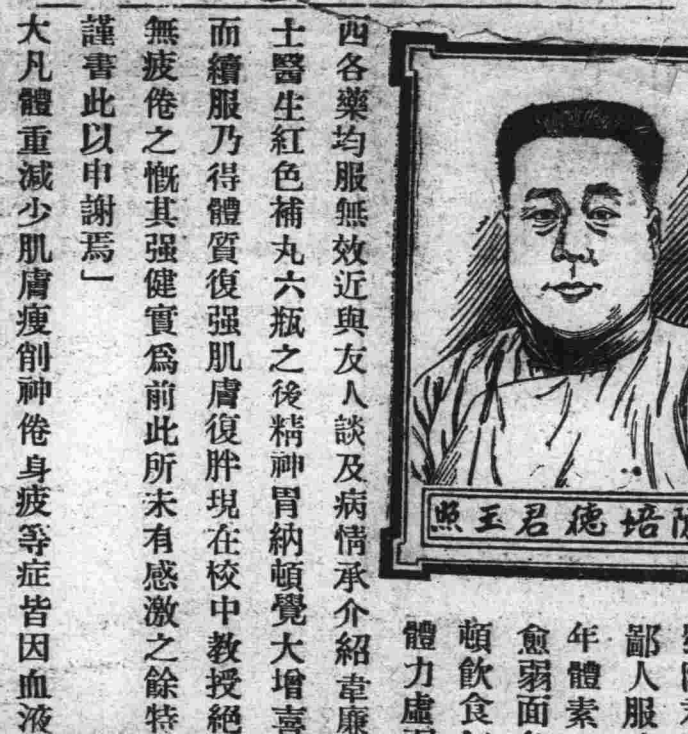 培德君玉照
鄙人服
年體素
愈弱面
頓飲食
體力虛
西各藥均服無效近與友人談及病情承介紹韋廉
士醫生紅色補丸六瓶之後精神胃納頓覺大增喜
而續服乃得體質復强肌膚復胖現在校中教授絕
無疲倦之慨其强健實爲前此所未有感激之餘特
謹書此以申謝焉」
大凡體重減少肌膚瘦削神倦身疲等症皆因血液